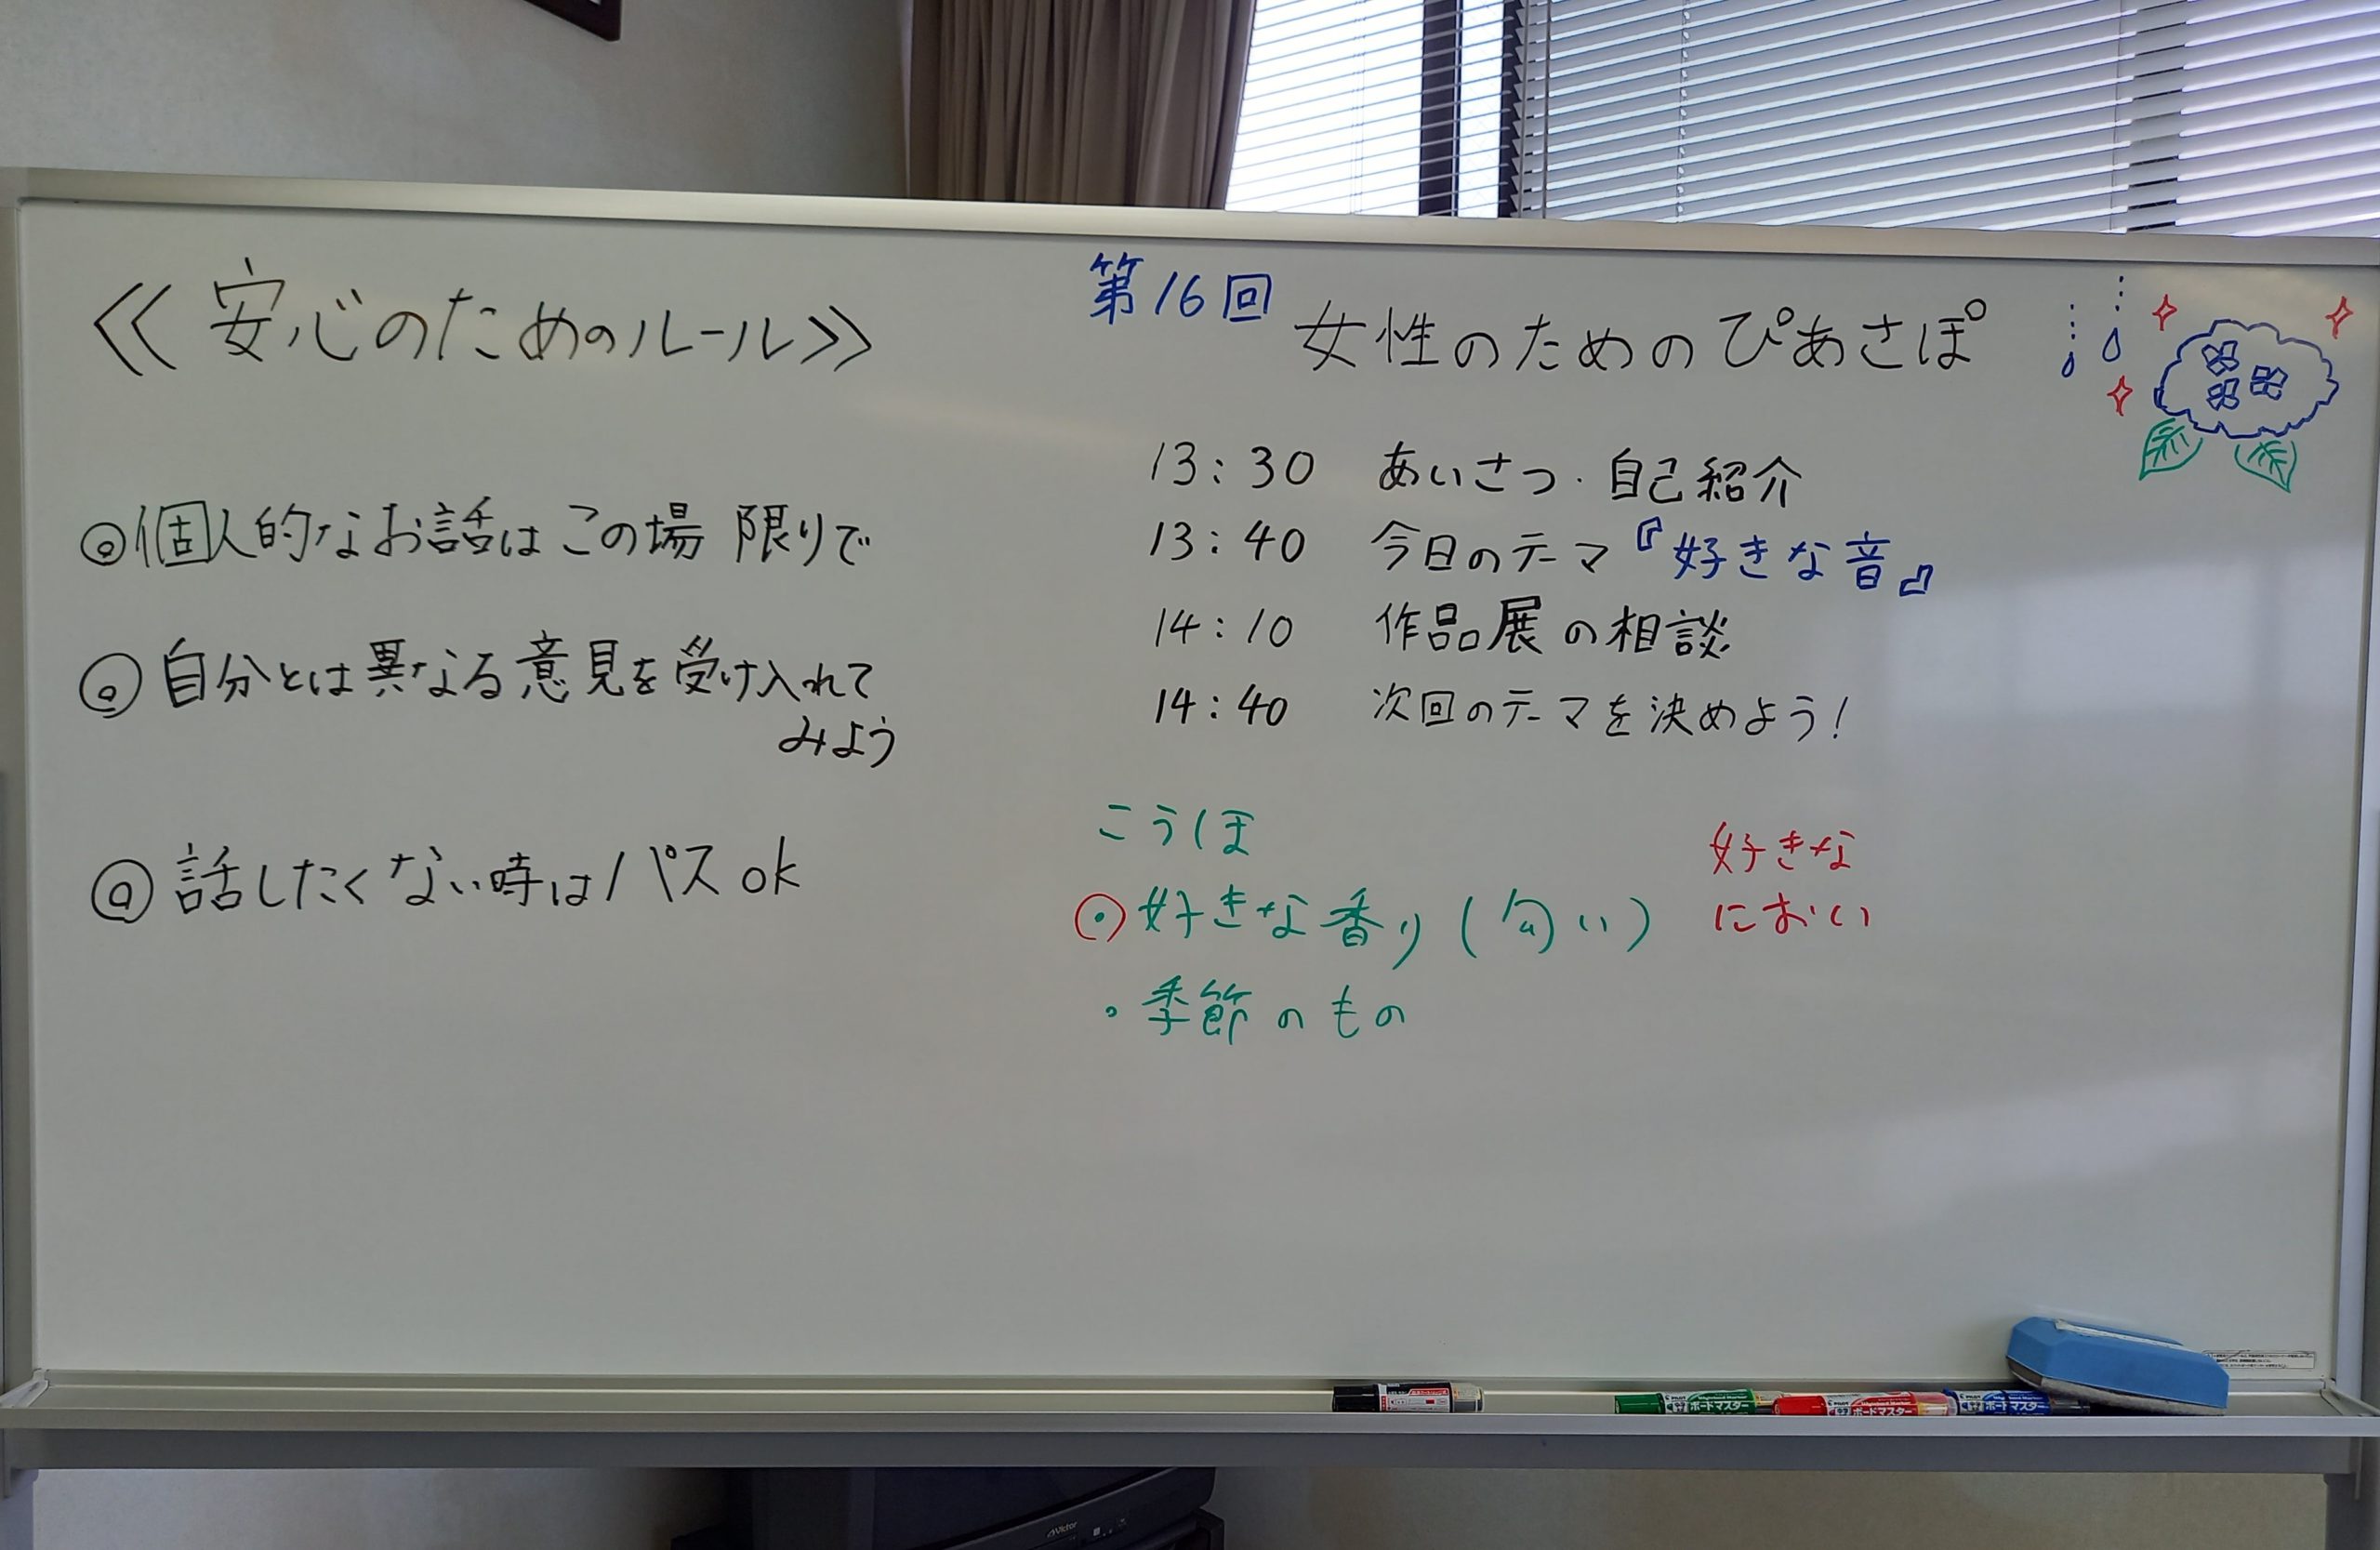 ≪安心のためのルール≫
◎個人的なお話はこの場限りで
◎自分とは異なる意見を受け入れて
みよう
◎話したくない時はパスok
第16回
女性のためのぴあさぽ
13:30 あいさつ・自己紹介
13:40 今日のテーマ『好きな音』
14:10 作品展の相談
14:40 次回のテーマを決めよう!
こうほ
・好きな香り(匂い)
・季節のもの
好きな
におい
Victor
PILOT
ボードマスター
PILOT
ボードマスター
PILOT
ボードマスター